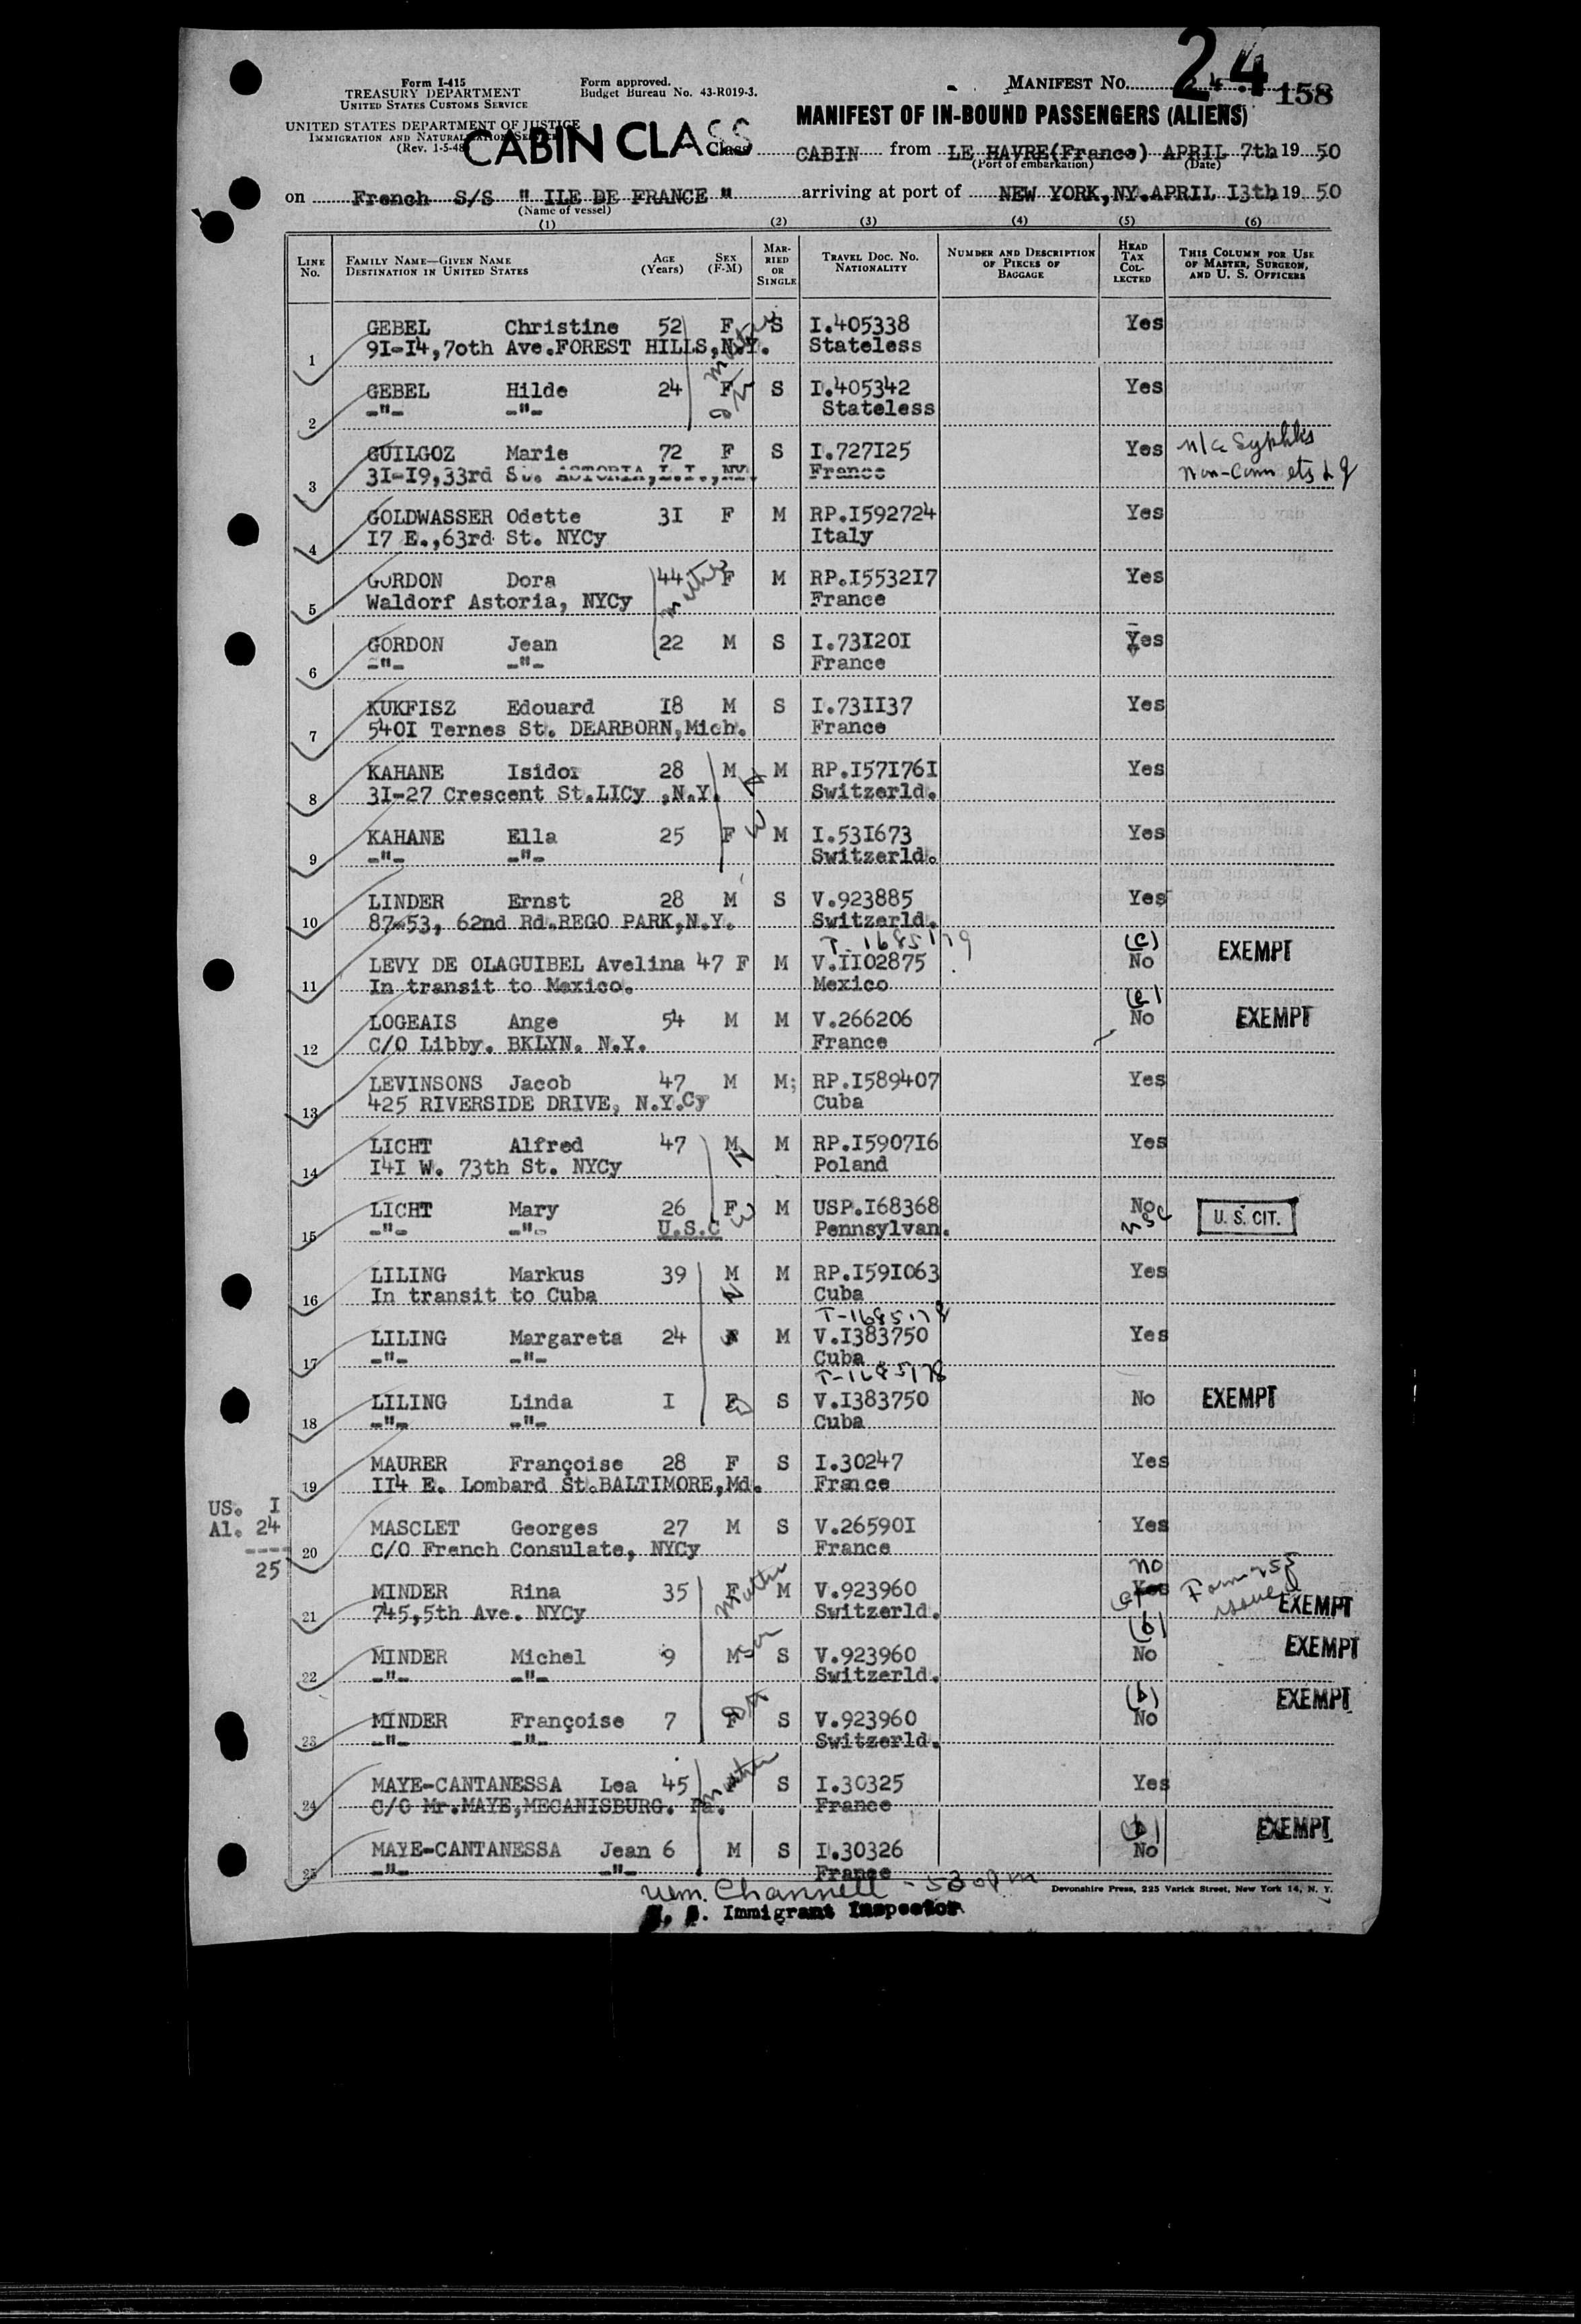 Form I-415
TREASURY DEPARTMENT
UNITED STATES CUSTOMS SERVICE
Form approved.
Budget Bureau No. 43-R019-3.
MANIFEST No. 24 158
UNITED STATES DEPARTMENT OF JUSTICE
IMMIGRATION AND NATURALIZATION SERVICE
(Rev. 1-5-48)
CABIN CLASS
MANIFEST OF IN-BOUND PASSENGERS (ALIENS)
Class CABIN from LE HAVRE(France) APRIL 7th 19 50
(Port of embarkation) (Date)
on French S/S " ILE DE FRANCE " arriving at port of NEW YORK,NY.APRIL I3th 19 50
(Name of vessel)
(1) (2) (3) (4) (5) (6)
LINE No. FAMILY NAME—GIVEN NAME DESTINATION IN UNITED STATES AGE (Years) SEX (F-M) MARRIED OR SINGLE TRAVEL DOC. No. NATIONALITY NUMBER AND DESCRIPTION OF PIECES OF BAGGAGE HEAD TAX COLLECTED THIS COLUMN FOR USE OF MASTER, SURGEON, AND U. S. OFFICERS
GEBEL Christine 52 F S I.405338 Yes
1 9I-I4,70th Ave.FOREST HILLS,N.Y. Stateless
mother
GEBEL Hilde 24 F S I.405342 Yes
2 -"- -"- Stateless
GUILGOZ Marie 72 F S I.727I25 Yes n/c Syphlis
3 3I-I9,33rd St. ASTORIA,L.I.,NY. France Non-Conn
GOLDWASSER Odette 3I F M RP.I592724 Yes
4 I7 E.,63rd St. NYCy Italy
GORDON Dora 44 F M RP.I5532I7 Yes
mother
5 Waldorf Astoria, NYCy France
GORDON Jean 22 M S I.73I20I Yes
6 -"- -"- France
KUKFISZ Edouard I8 M S I.73II37 Yes
7 540I Ternes St. DEARBORN,Mich. France
KAHANE Isidor 28 M M RP.I57I76I Yes
H
8 3I-27 Crescent St.LICy ,N.Y. Switzerld.
KAHANE Ella 25 F M I.53I673 Yes
W
9 -"- -"- Switzerld.
LINDER Ernst 28 M S V.923885 Yes
10 87-53, 62nd Rd.REGO PARK,N.Y. Switzerld.
T-1685179 (c) EXEMPT
LEVY DE OLAGUIBEL Avelina 47 F M V.II02875 No
11 In transit to Mexico. Mexico
(e)
LOGEAIS Ange 54 M M V.266206 No EXEMPT
12 C/O Libby. BKLYN. N.Y. France
LEVINSONS Jacob 47 M M; RP.I589407 Yes
13 425 RIVERSIDE DRIVE, N.Y.Cy Cuba
LICHT Alfred 47 M M RP.I5907I6 Yes
H
14 I4I W. 73th St. NYCy Poland
LICHT Mary 26 F M USP.I68368 No U. S. CIT.
W USC
15 -"- -"- U.S.C Pennsylvan.
LILING Markus 39 M M RP.I59I063 Yes
H
16 In transit to Cuba Cuba
T-1685178
LILING Margareta 24 F M V.I383750 Yes
17 -"- -"- Cuba
T-1685178
LILING Linda I F S V.I383750 No EXEMPT
18 -"- -"- Cuba
MAURER Françoise 28 F S I.30247 Yes
19 II4 E. Lombard St.BALTIMORE,Md. France
US. I
Al. 24
----
25
MASCLET Georges 27 M S V.26590I Yes
20 C/O French Consulate, NYCy France
no
MINDER Rina 35 F M V.923960 Yes Form issued
mother
21 745,5th Ave. NYCy Switzerld. EXEMPT
(b)
MINDER Michel 9 M S V.923960 No EXEMPT
son
22 -"- -"- Switzerld.
(b) EXEMPT
MINDER Françoise 7 F S V.923960 No
23 -"- -"- Switzerld.
MAYE-CANTANESSA Lea 45 S I.30325 Yes
mother
24 C/O Mr.MAYE,MECANISBURG. Pa. France
(b) EXEMPT
MAYE-CANTANESSA Jean 6 M S I.30326 No
25 -"- -"- France
Wm. Channell - 530 pm
Devonshire Press, 225 Varick Street, New York 14, N. Y.
U. S. Immigrant Inspector